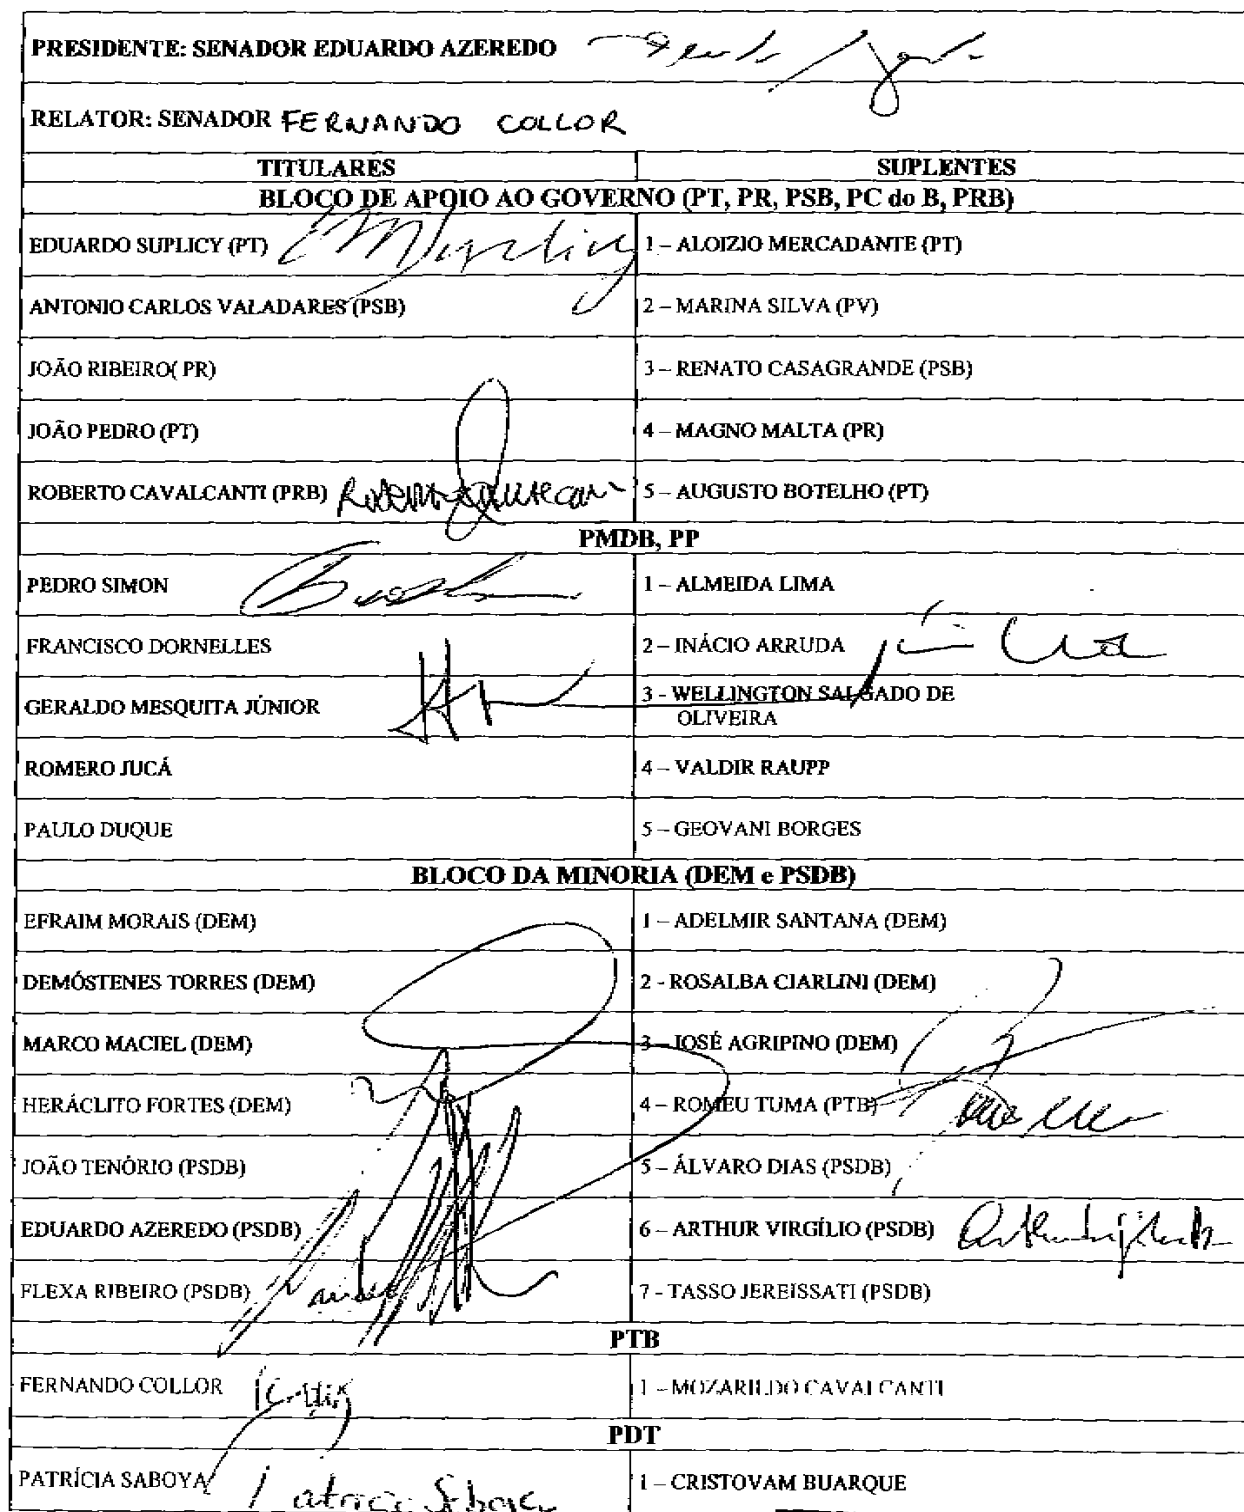 PRESIDENTE: SENADOR EDUARDO AZEREDO
RELATOR: SENADOR FERNANDO COLLOR
TITULARES SUPLENTES
BLOCO DE APOIO AO GOVERNO (PT, PR, PSB, PC do B, PRB)
EDUARDO SUPLICY (PT) 1 – ALOIZIO MERCADANTE (PT)
ANTONIO CARLOS VALADARES (PSB) 2 – MARINA SILVA (PV)
JOÃO RIBEIRO( PR) 3 – RENATO CASAGRANDE (PSB)
JOÃO PEDRO (PT) 4 – MAGNO MALTA (PR)
ROBERTO CAVALCANTI (PRB) 5 – AUGUSTO BOTELHO (PT)
PMDB, PP
PEDRO SIMON 1 – ALMEIDA LIMA
FRANCISCO DORNELLES 2 – INÁCIO ARRUDA
GERALDO MESQUITA JÚNIOR 3 - WELLINGTON SALGADO DE
OLIVEIRA
ROMERO JUCÁ 4 – VALDIR RAUPP
PAULO DUQUE 5 – GEOVANI BORGES
BLOCO DA MINORIA (DEM e PSDB)
EFRAIM MORAIS (DEM) 1 – ADELMIR SANTANA (DEM)
DEMÓSTENES TORRES (DEM) 2 - ROSALBA CIARLINI (DEM)
MARCO MACIEL (DEM) 3 – JOSÉ AGRIPINO (DEM)
HERÁCLITO FORTES (DEM) 4 – ROMEU TUMA (PTB)
JOÃO TENÓRIO (PSDB) 5 – ÁLVARO DIAS (PSDB)
EDUARDO AZEREDO (PSDB) 6 – ARTHUR VIRGÍLIO (PSDB)
FLEXA RIBEIRO (PSDB) 7 - TASSO JEREISSATI (PSDB)
PTB
FERNANDO COLLOR 1 – MOZARILDO CAVALCANTI
PDT
PATRÍCIA SABOYA Patricia Saboya 1 – CRISTOVAM BUARQUE